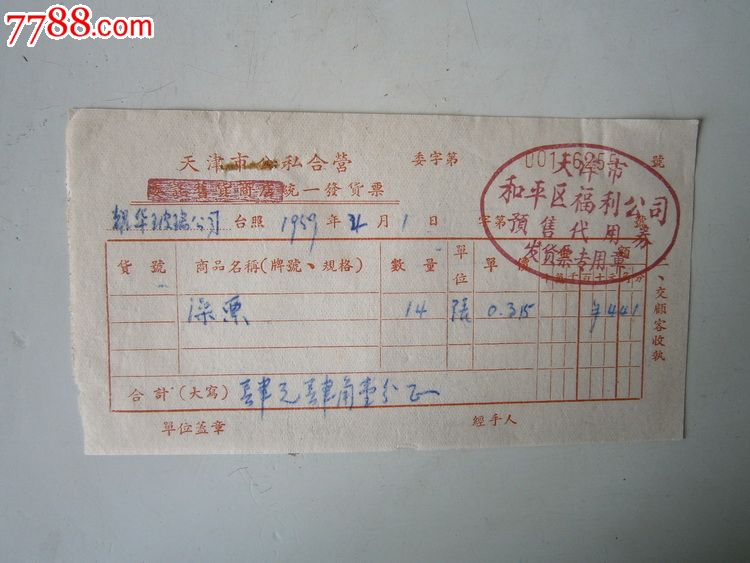 7788.com
天津市公私合營
委字第
0016255
號
統一發貨票
天津市
和平区福利公司
預售代用券
发货票专用章
耀华玻璃公司 台照 1959 年 4 月 1 日 字第
貨號 商品名稱(牌號、規格) 數量 單位 單價
澡票 14 張 0.315 ¥441
合計(大寫) 肆元肆角壹分正
單位盖章 經手人
一、交顧客收执